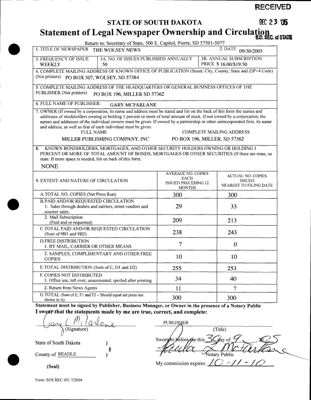 RECEIVED
DEC 23 '05
STATE OF SOUTH DAKOTA
Statement of Legal Newspaper Ownership and Circulation
S.D. SEC. OF STATE
Return to: Secretary of State, 500 E. Capitol, Pierre, SD 57501-5077
1. TITLE OF NEWSPAPER THE WOLSEY NEWS
2. DATE 09/30/2005
3. FREQUENCY OF ISSUE WEEKLY
3A. NO. OF ISSUES PUBLISHED ANNUALLY 50
3B. ANNUAL SUBSCRIPTION PRICE $ 16.00/$19.50
4. COMPLETE MAILING ADDRESS OF KNOWN OFFICE OF PUBLICATION (Street, City, County, State and ZIP+4 Code)
(Not printers) PO BOX 307, WOLSEY, SD 57384
5. COMPLETE MAILING ADDRESS OF THE HEADQUARTERS OR GENERAL BUSINESS OFFICES OF THE
PUBLISHER (Not printers) PO BOX 196, MILLER SD 57362
6. FULL NAME OF PUBLISHER: GARY MCFARLANE
7. OWNER (If owned by a corporation, its name and address must be stated and also on the back of this form the names and
addresses of stockholders owning or holding 1 percent or more of total amount of stock. If not owned by a corporation, the
names and addresses of the individual owners must be given. If owned by a partnership or other unincorporated firm, its name
and address, as well as that of each individual must be given.
FULL NAME
COMPLETE MAILING ADDRESS
MILLER PUBLISHING COMPANY, INC
PO BOX 196, MILLER, SD 57362
8. KNOWN BONDHOLDERS, MORTGAGES, AND OTHER SECURITY HOLDERS OWNING OR HOLDING 1
PERCENT OR MORE OF TOTAL AMOUNT OF BONDS, MORTGAGES OR OTHER SECURITIES (If there are none, so
state. If more space is needed, list on back of this form.
NONE
9. EXTENT AND NATURE OF CIRCULATION
AVERAGE NO. COPIES EACH ISSUED PRECEDING 12 MONTHS
ACTUAL NO. COPIES ISSUED NEAREST TO FILING DATE
A. TOTAL NO. COPIES (Net Press Run) 300 300
B. PAID AND/OR REQUESTED CIRCULATION
1. Sales through dealers and carriers, street vendors and counter sales. 29 33
2. Mail Subscription (Paid and or requested) 209 213
C. TOTAL PAID AND/OR REQUESTED CIRCULATION (Sum of 9B1 and 9B2) 238 243
D. FREE DISTRIBUTION
1. BY MAIL, CARRIER OR OTHER MEANS 7 0
2. SAMPLES, COMPLIMENTARY AND OTHER FREE COPIES 10 10
E. TOTAL DISTRIBUTION (Sum of C, D1 and D2) 255 253
F. COPIES NOT DISTRIBUTED
1. Office use, left over, unaccounted, spoiled after printing 34 40
2. Return from News Agents 11 7
G. TOTAL (Sum of E, F1 and F2 - Should equal net press run shown in A) 300 300
Statement must be signed by Publisher, Business Manager, or Owner in the presence of a Notary Public
I swear that the statements made by me are true, correct, and complete:
Gary L McFarlane
PUBLISHER
(Signature)
(Title)
State of South Dakota )
§
County of BEADLE )
(Seal)
Notary Public
My commission expires: 10-11-10
Form: SOS REC 051 7/2004